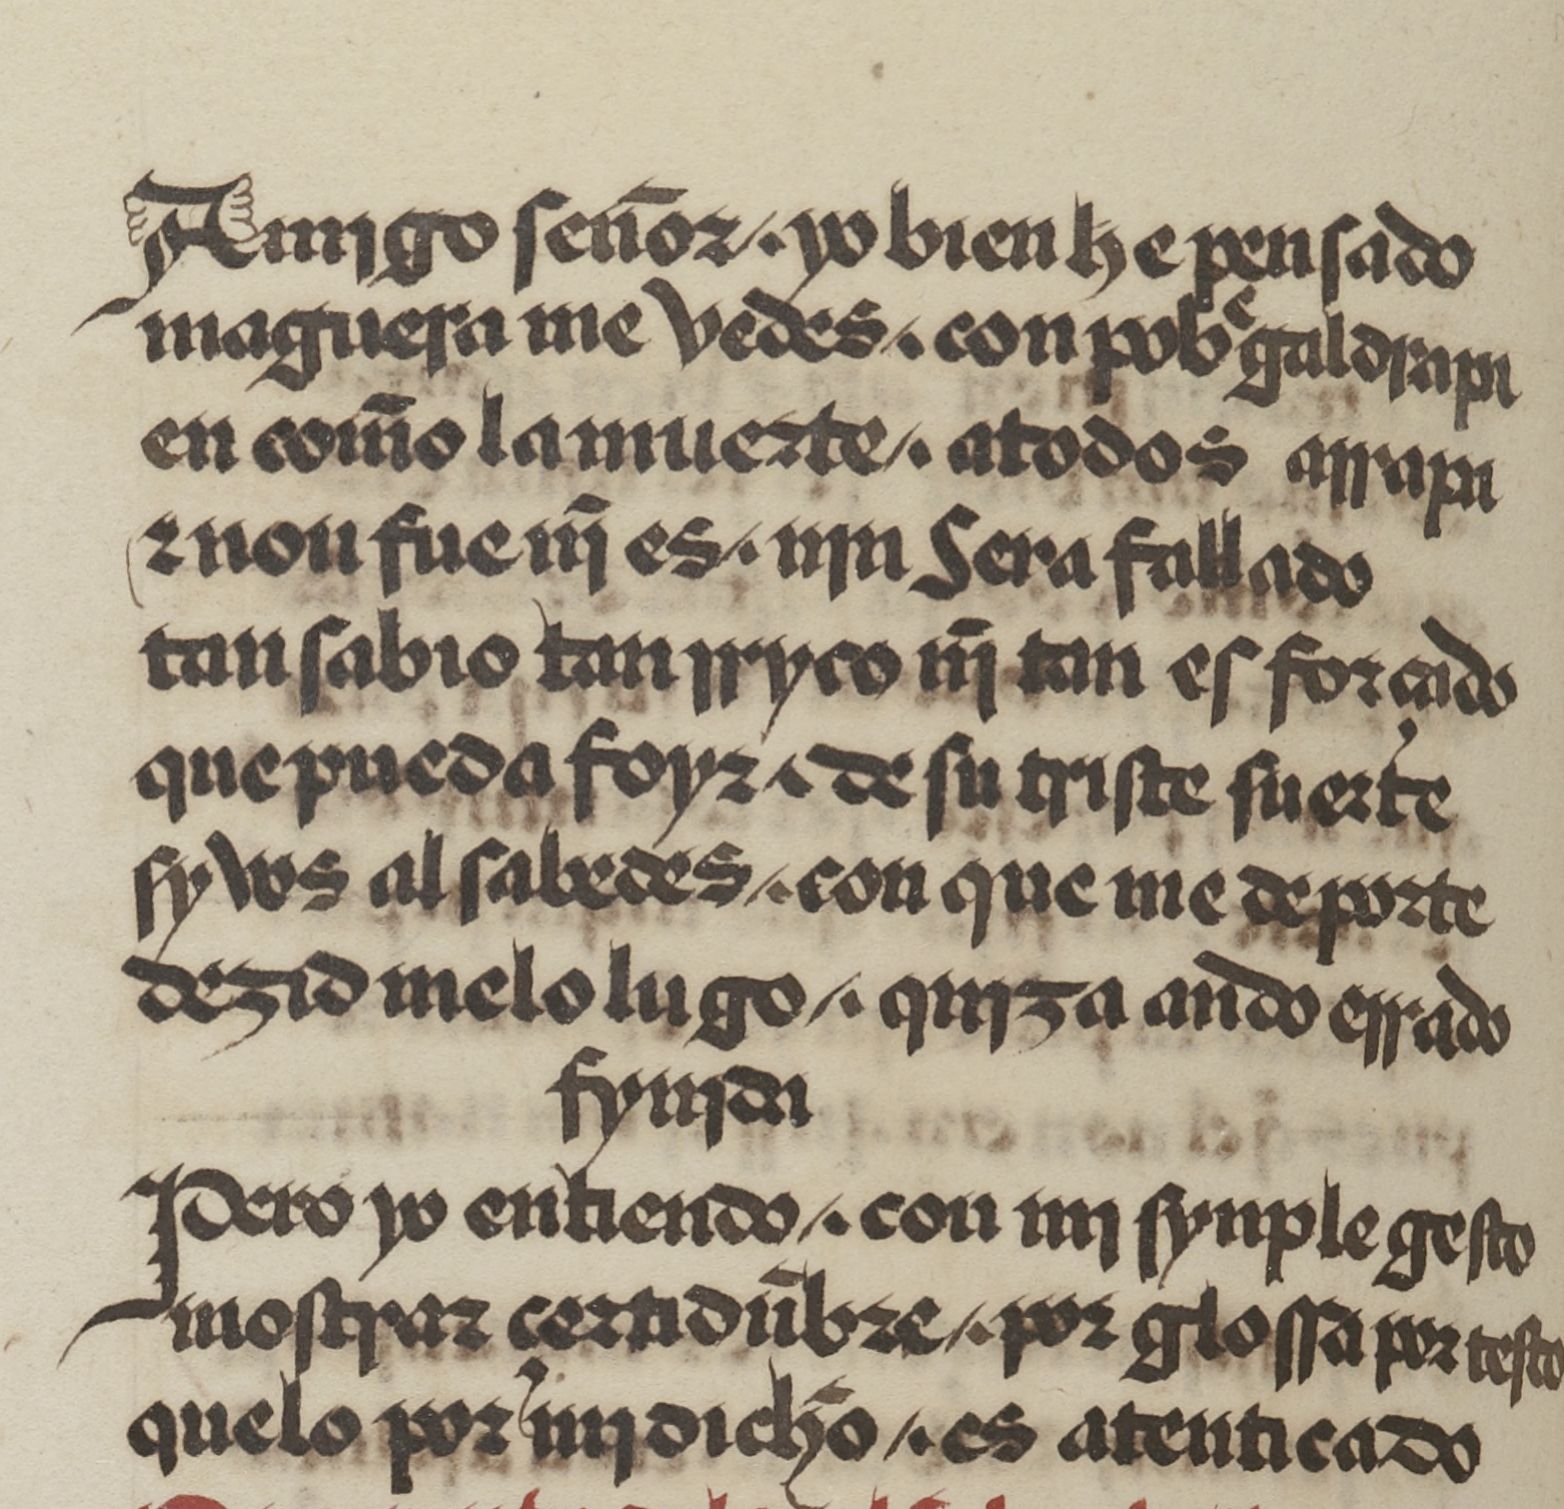 Amigo señor /. yo bien he pensado
maguera me vedes /. con pobe galdrapa
en com̄o la muerte /. a todos arrapa
τ non fue nj̄ es /. njn Sera fallado
tan sabio tan rryco nj̄ tan es forçado
que pueda foyr /. de su triste suerte
sy vos al sabedes /. con que me deporte
dezid melo lugo /. quiza ando errado
fynjda
Pero yo entiendo /. con mj synple gesto
mostrar certidūbre /. por glossa por testo
quelo por mj dich̄o /. es atenticado